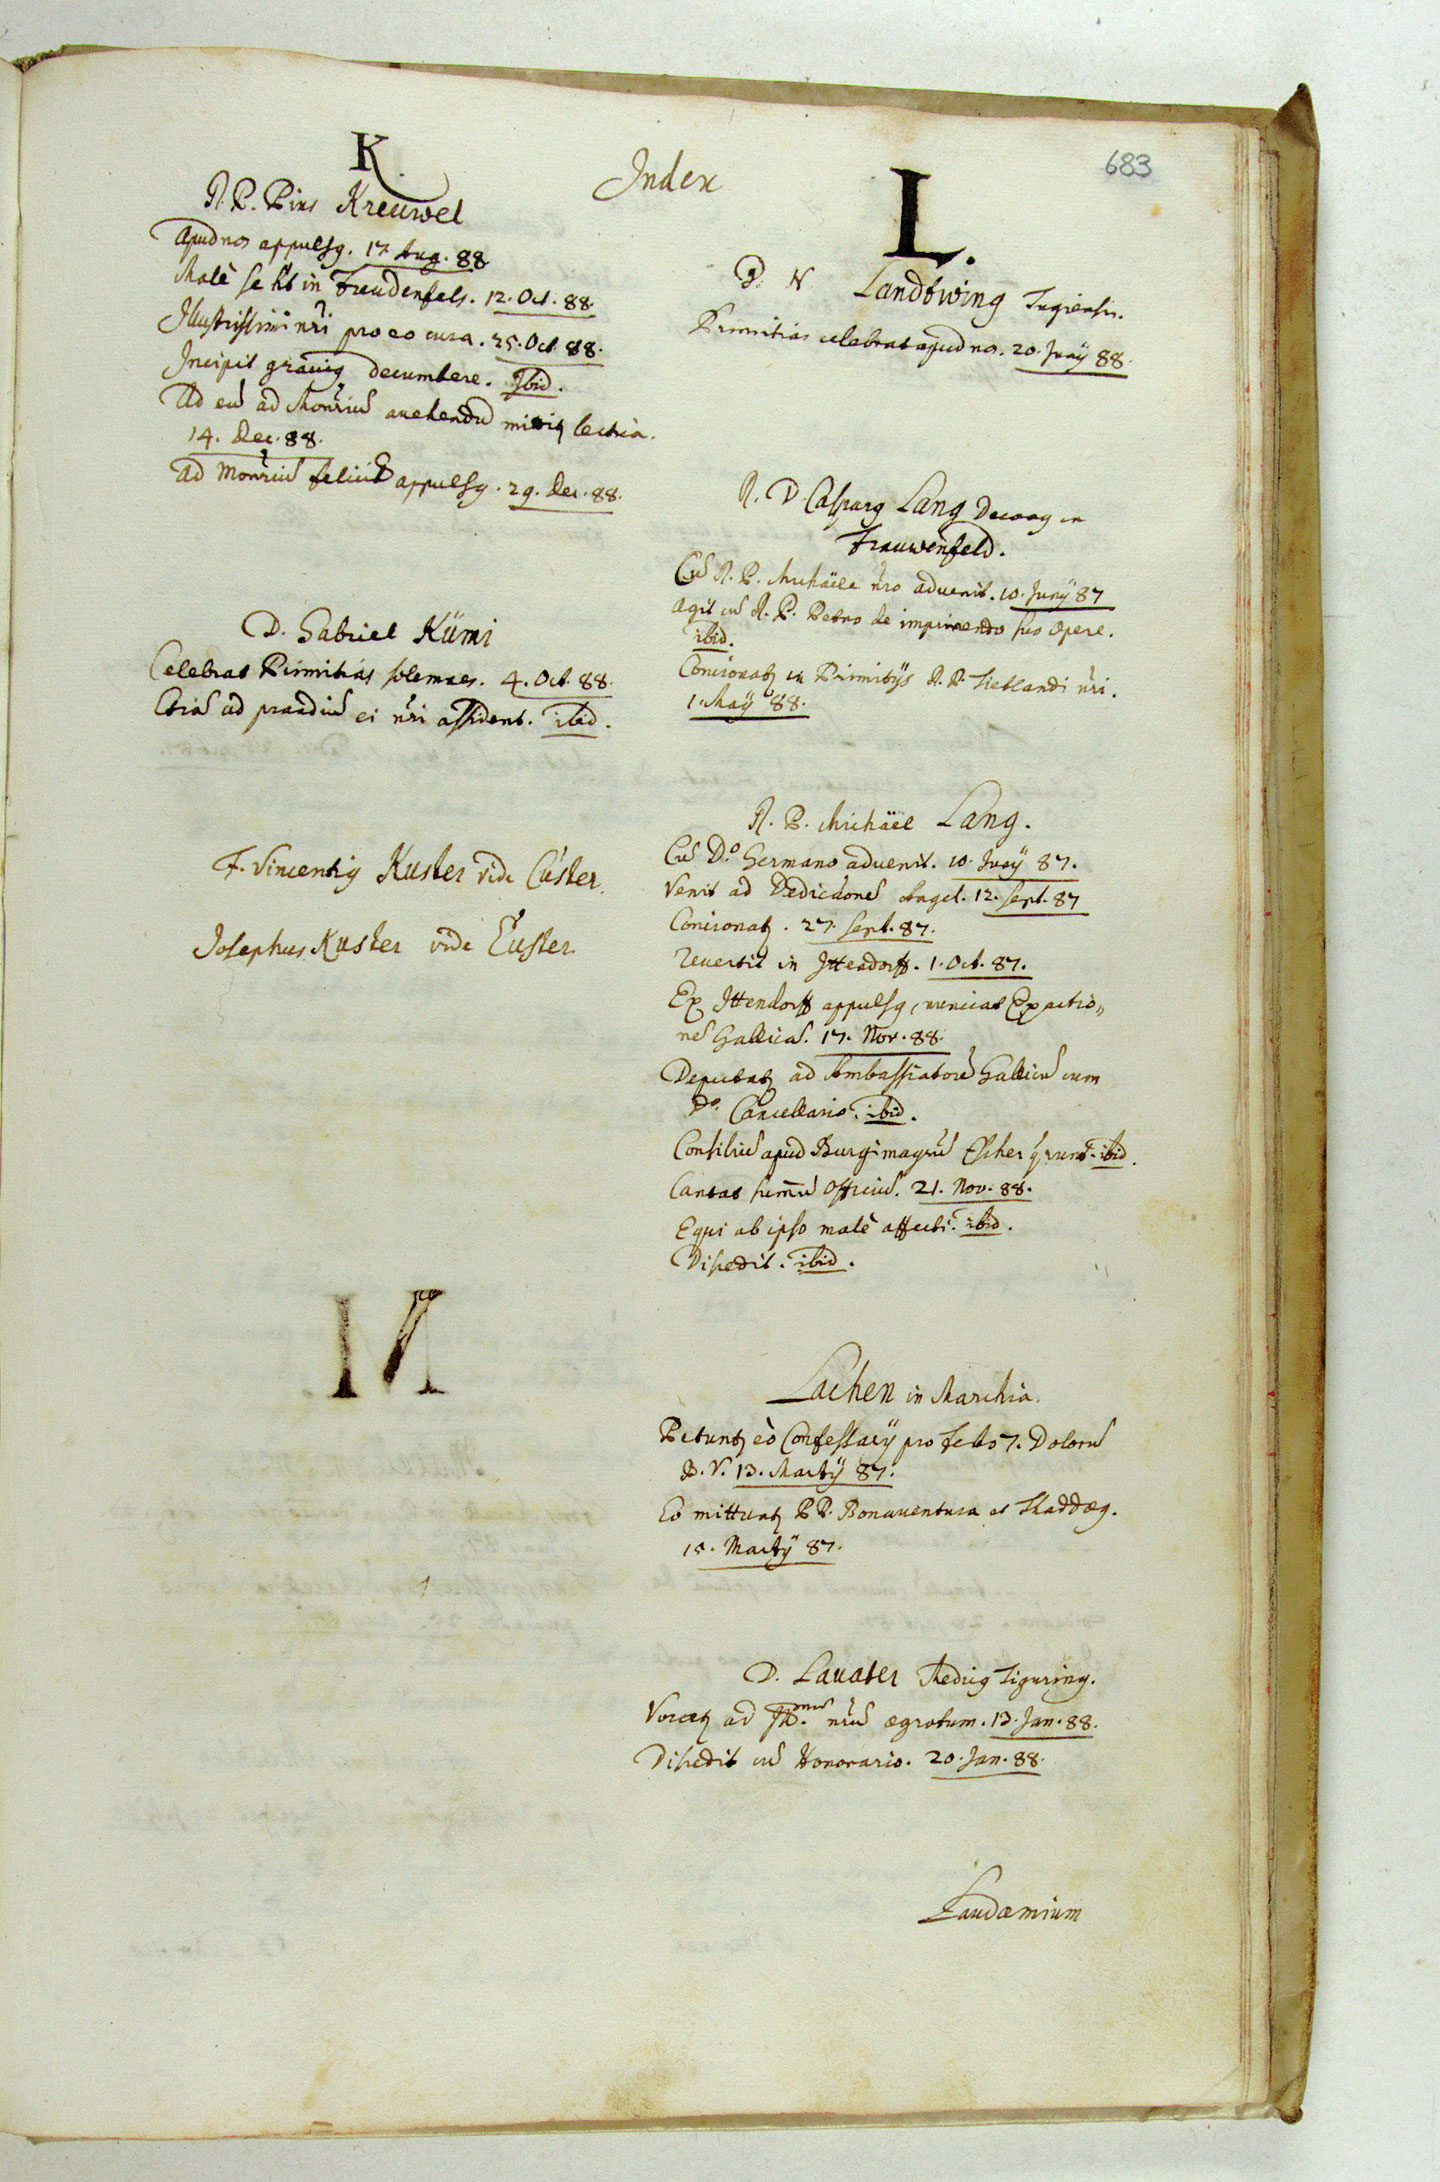 683
Index
K.
R. P. Pius Kreüwel
Apud nos appulsq. 17. Aug. 88
Malè se ht in Freüdenfels. 12. Oct. 88.
Illustrissimi nri pro eo cura. 25. Oct. 88.
Incipit graviq decumbere. Ibid.
Ad eu ad Monriu auehendu mittitq lectica.
14. Dec. 88.
Ad Monriu felicit appulsq. 29. Dec. 88.
D. Gabriel Kümi
Celebrat Primitias solemnes. 4. Oct. 88.
Etia ad prandiu ei nri assident. ibid.
F. Vincentiq Kuster vide Cüster.
Josephus Kuster vide Cüster.
M
L.
D. N Landtwing Tugiensis.
Primitias celebrat apud nos. 20. Juny 88.
R. D. Casparq Lang Decanq in
Frauwenfeld.
Cu R. P. Michäele nro aduenit. 10. Juny 87
Agit cu R. P. Petro de imprimendo suo opere.
ibid.
Concionatq in Primitijs R. P. Tietlandi nri.
1. Maÿ 88.
R. P. Michäel Lang.
Cu D.º Germano aduenit. 10. Juny 87.
Venit ad Dedicaone Angel. 12. Sept. 87
Concionatq. 27. Sept. 87.
Reuertit in Ittendorff. 1. Oct. 87.
Ex Ittendorff appulsq, nunciat Exactio„
ne Gallica. 17. Nov. 88.
Deputatq ad Ambassiatore Gallicu cum
D.º Cancellario. ibid.
Consiliu apud Burgimagru Escher qrunt. ibid.
Cantat sumu Officiu. 21. Nov. 88.
Equi ab ipso malè affecti. ibid.
Discedit. ibid.
Lachen in Marchia.
Petuntq eò Confessarÿ pro festo 7. Doloru
B. V. 13. Martÿ 87.
Eò mittuntq PP. Bonauentura et Thaddæq.
15. Martÿ 87.
D. Lauater Medicq Tigurinq.
Vocatq ad nru ægrotum. 13. Jan. 88.
Discedit cu Honorario. 20. Jan. 88.
Laudæmium